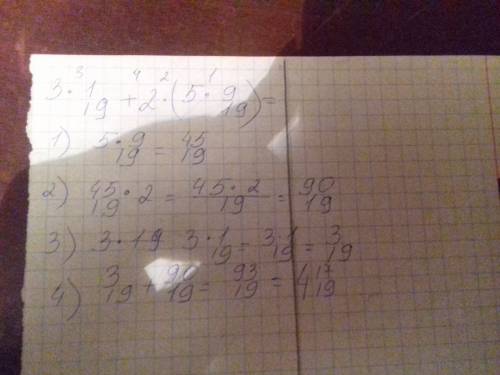 3 · 1/19 + 2 · (5 · 9/19) =
1) 5 · 9/19 = 45/19
2) 45/19 · 2 = 45 · 2/19 = 90/19
3) 3 · 19 3 · 1/19 = 3 · 1/19 = 3/19
4) 3/19 + 90/19 = 93/19 = 4 17/19